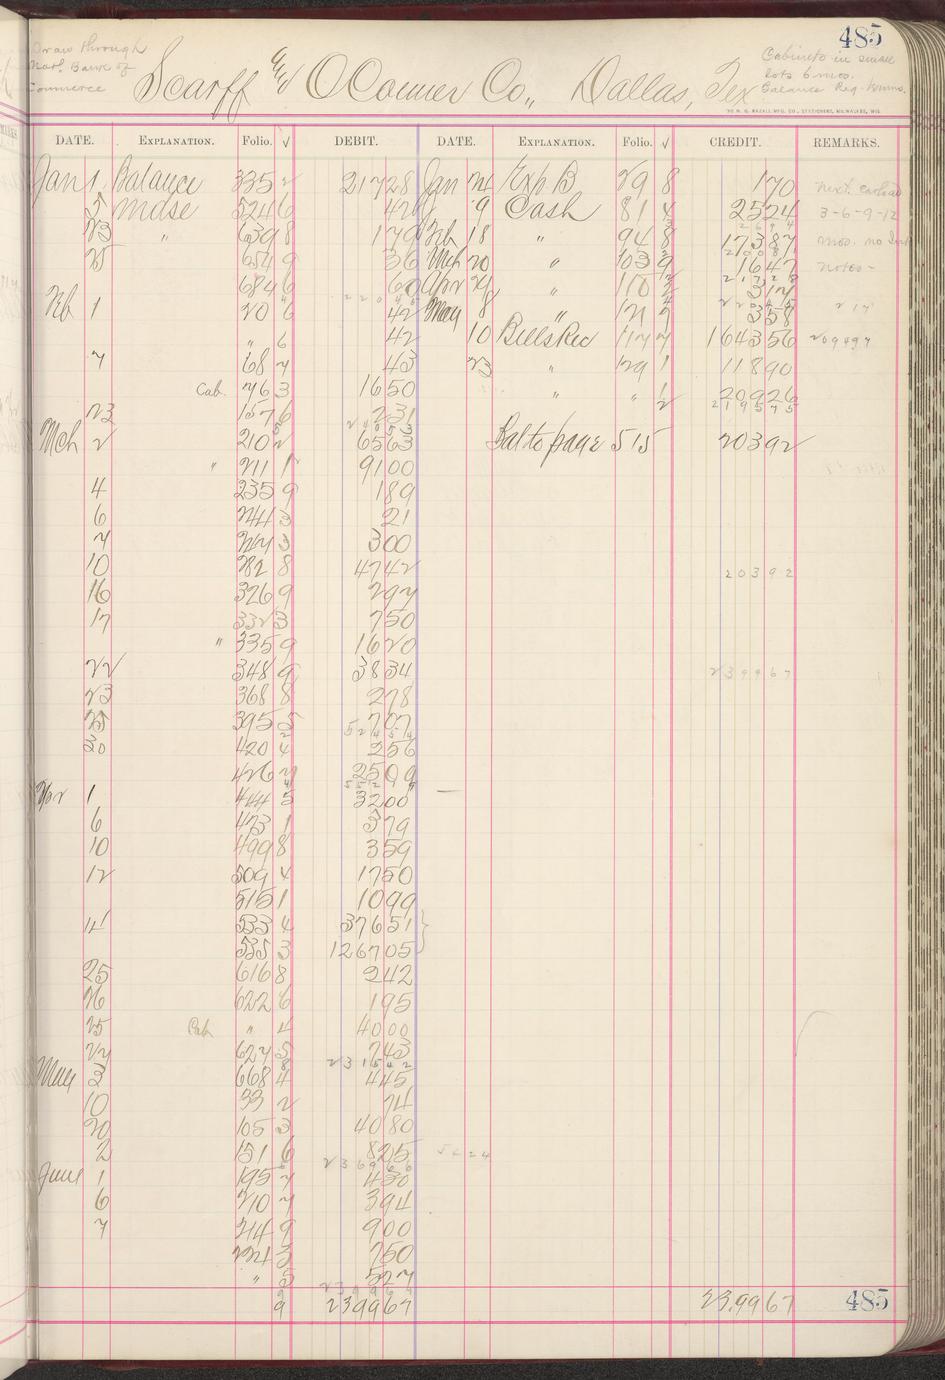 485
Draw through
Natl. Bank of
Commerce
Scarff and O'Conner Co., Dallas, Tex
Cabinets in small
lots 6 mos.
Balance Reg. terms.
DATE. EXPLANATION. Folio. √ DEBIT. DATE. EXPLANATION. Folio. √ CREDIT. REMARKS.
Jan 1 Balance 335 2 21728 Jan 24 Exp B 29 8 170 next carload
5 mdse 524 6 42 9 Cash 81 4 2524 3-6-9-12
23 " 639 8 179 Feb 18 " 94 8 17387 mos. no Int
25 654 9 36 Mch 20 " 103 9 1647 notes -
684 6 60 Apr 24 " 110 317
Feb 1 20 6 42 May 8 " 121 7 358
" 6 42 10 Bills Rec 117 7 164356 209497
7 68 7 43 23 " 129 1 11890
Cab. 76 3 1650 " " 20926
23 157 6 231 219575
Mch 2 210 2 6563 Bal to page 515 20392
" 211 1 9100
4 235 9 189
6 244 3 21
7 247 3 300
10 282 8 4742 20392
16 326 9 297
17 332 3 750
" 335 9 1620
22 348 9 3834 239967
23 368 8 278
25 395 5 707
30 420 4 256
426 7 2509
Apr 1 444 5 3200
6 473 1 379
10 499 8 359
12 509 4 1750
515 1 1099
14 533 4 37651
535 3 126705
25 616 8 242
26 622 6 195
25 Cab " 4 4000
27 627 5 743
231542
May 3 668 4 445
10 33 2 74
20 105 3 4080
2 151 6 825
236966
June 1 195 7 430
6 210 7 394
7 214 9 900
224 3 750
" 5 527
9 239967 23,9967 485